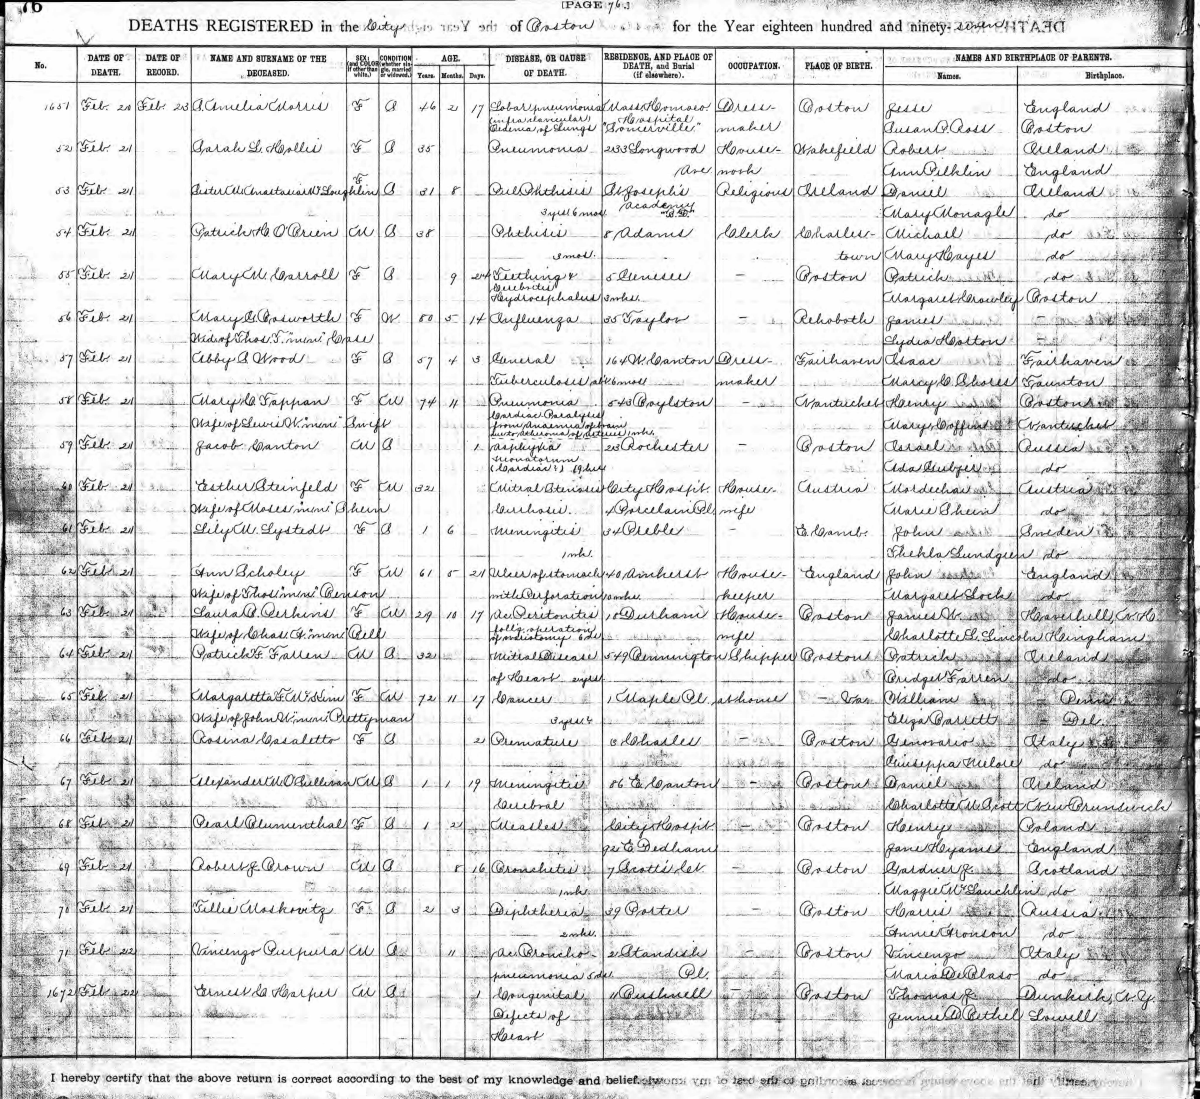 76
[PAGE 76]
DEATHS REGISTERED in the City of Boston for the Year eighteen hundred and ninety-seven
No. DATE OF DEATH. DATE OF RECORD. NAME AND SURNAME OF THE DECEASED. SEX; (and COLOR if other than white.) CONDITION (whether single, married, or widowed.) AGE. DISEASE, OR CAUSE OF DEATH. RESIDENCE, AND PLACE OF DEATH, and Burial (if elsewhere). OCCUPATION. PLACE OF BIRTH. NAMES AND BIRTHPLACE OF PARENTS.
Years. Months. Days. Names. Birthplace.
1651 Feb 21 Feb 23 S. Amelia Morris F S 46 2 17 Lobar pneumonia Mass Homoeo Dress- Boston Jesse England
(infra clavicular) Hospital
Edema of Lungs "Somerville" maker Susan P. Ross Boston
52 Feb 21 Sarah L. Hollis F S 35 Pneumonia 233 Longwood House- Wakefield Robert Ireland
Ave work Ann England
53 Feb 21 Sister M. Anastasia McLoughlin F S 31 8 Pul Phthisis St Joseph's Religious Ireland Daniel Ireland
3 yrs 6 mos Academy Mary Monagle do
54 Feb 21 Patrick H. O'Brien M S 38 Phthisis 8 Adams Clerk Charles- Michael do
3 mos. town Mary Hayes do
55 Feb 21 Mary M. Carroll F S 9 24 Teething & 5 Genesee – Boston Patrick do
Cerebritis
Hydrocephalus 3 wks. Margaret Crowley Boston
56 Feb 21 Mary A. Bosworth F W 80 5 14 Influenza 35 Taylor – Rehoboth James –
Wid. of Thos. T. "mn" Case Lydia Horton –
57 Feb 21 Abby A. Wood F S 57 4 3 General 164 W. Canton Dress- Fairhaven Isaac Fairhaven
Tuberculosis abt 6 mos maker Marcy C. Shores Taunton
58 Feb 21 Mary C. Tappan F M 74 11 Pneumonia 543 Boylston – Nantucket Henry Boston
Wife of Lewis W. "mn" Swift Cardiac Paralysis Mary Coffin Nantucket
from Anaemia of brain
59 Feb 21 Jacob Canton M S 1 Asphyxia 23 Rochester – Boston Israel Russia
Neonatorum
(Cardiac) 19 hrs Ada do
60 Feb 21 Esther Steinfeld F M 32 Mitral Stenosis City Hospit. House- Austria Mordechai Austria
Wife of Moses "mn" Shein Cirrhosis 4 Porcelain Pl. wife Marie Shein do
61 Feb 21 Lily M. Lystedt F S 1 6 Meningitis 34 Preble – E. Camb. John Sweden
1 wk. Thekla Lundgren do
62 Feb 21 Ann Scholey F M 61 5 21 Ulcer of stomach 40 Amherst House- England John England
Wife of Thos "mn" Benson with Perforation 10 wks. keeper Margaret Lock do
63 Feb 21 Laura A. Perkins F M 29 10 17 Ac Peritonitis 10 Durham House- Boston James W. Haverhill, N.H.
Wife of Chas. H. "mn" Bell follg operation wife Charlotte L. Lincoln Hingham
64 Feb 21 Patrick F. Farren M S 32 Mitral Disease 549 Bennington Shipper Boston Patrick Ireland
of Heart 2 yrs. Bridget Farren do
65 Feb 21 Margaretta F. McKim F M 72 11 17 Cancer 1 Maple Pl. at house – Va. William – Penn
Wife of John W. "mn" Prettyman 3 yrs. Eliza Barrett – Del.
66 Feb 21 Rosina Casaletto F S 2 Premature Charles – Boston Genovario Italy
Giuseppa Melore do
67 Feb 21 Alexander M. O'Sullivan M S 1 1 19 Meningitis 86 E. Canton – Boston Daniel Ireland
Cerebral Charlotte M. Scott New Brunswick
68 Feb 21 Pearl Blumenthal F S 1 2 Measles City Hospit – Boston Henry Poland
92 E. Dedham Jane Hyams England
69 Feb 21 Robert J. Brown M S 8 16 Bronchitis 7 Scotts Ct – Boston Gardner J. Scotland
1 wk. Maggie McLauchlin do
70 Feb 21 Tillie Moskovitz F S 2 3 Diphtheria 39 Porter – Boston Harris Russia
2 wks. Annie Aronson do
71 Feb 22 Vincenzo Purpura M S 11 Ac Broncho- 2 Standish – Boston Vincenzo Italy
pneumonia 5 ds. Pl. Maria De Blaso do
1672 Feb 22 Ernest C. Harper M S 1 Congenital 11 Bushnell – Boston Thomas J. Dunkirk, N.Y.
Defects of Jennie A. Bethel Lowell
Heart
I hereby certify that the above return is correct according to the best of my knowledge and belief.